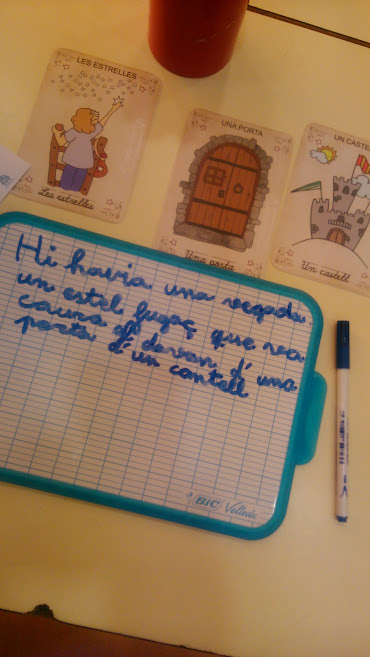 LES ESTRELLES
Les estrelles
UNA PORTA
Una porta
UN CASTE
Un castell
Hi havia una vegada
un estel fugaç que va
caura al davan d'una
porta d'un cantell
BIC Velleda